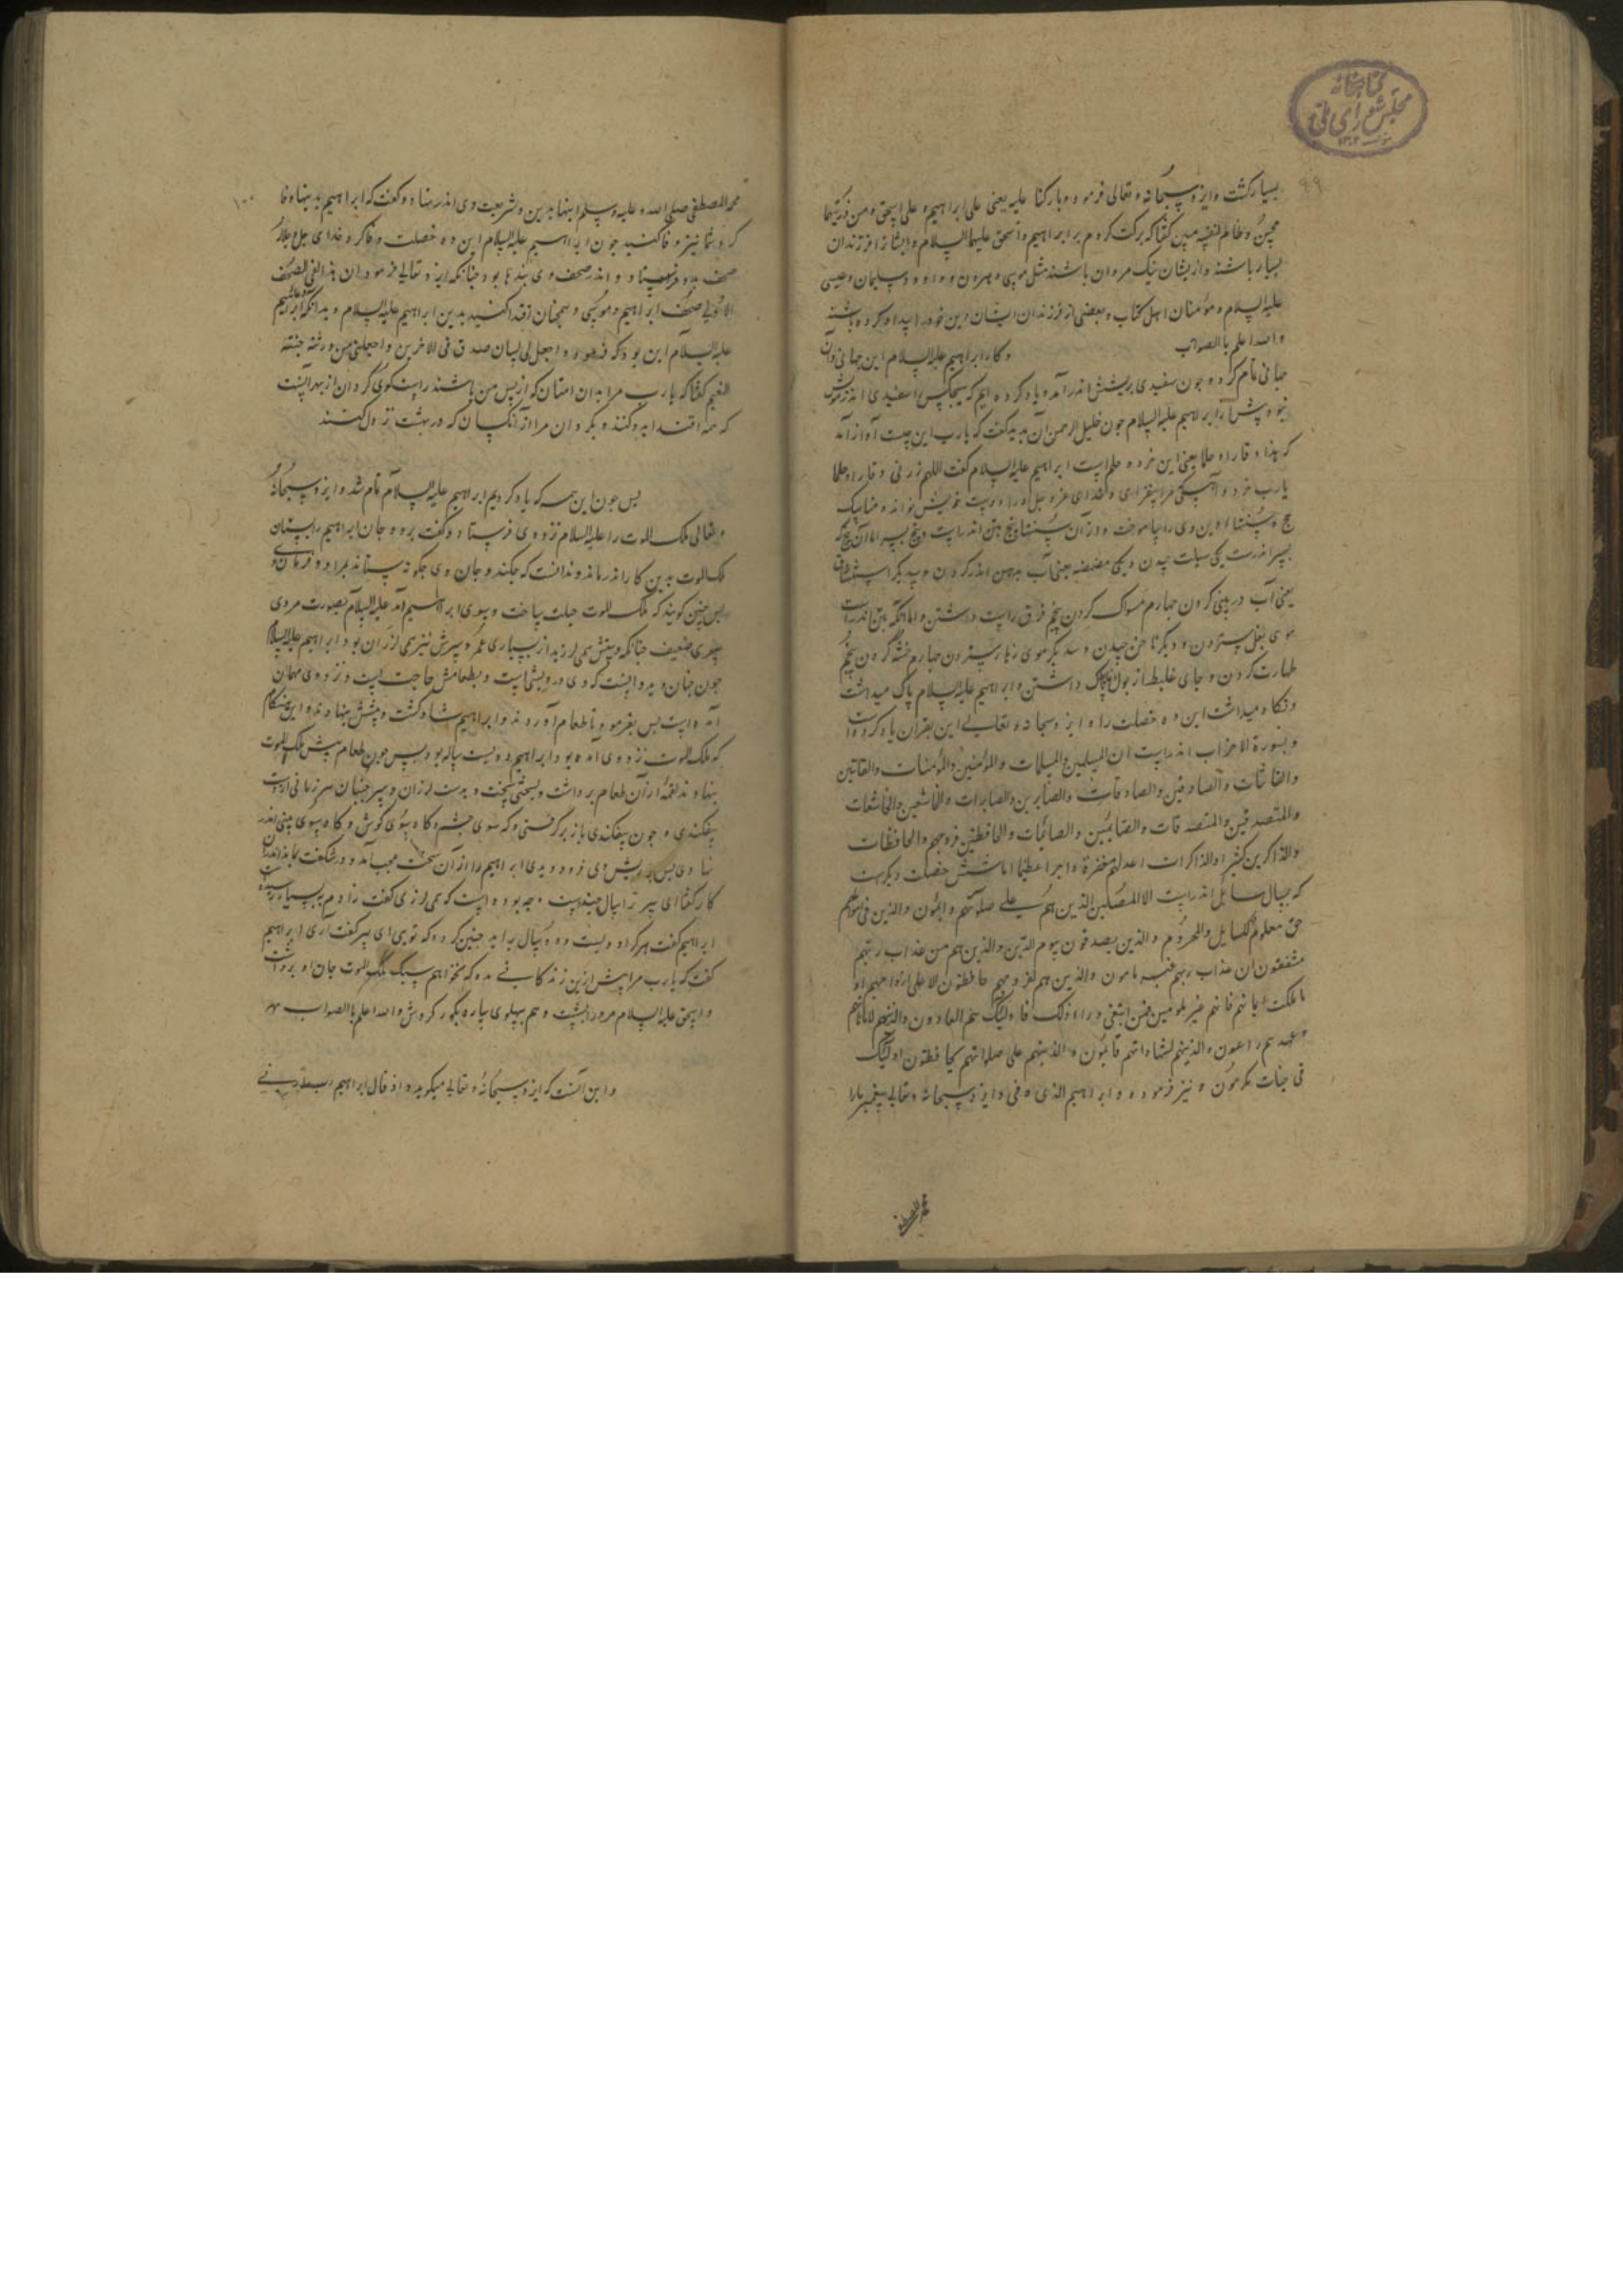 کتابخانه
مجلس شورای ملی
۹۹
بسیار گشت و ایزد سبحانه و تعالی فرمود و بارکنا علیه یعنی علی ابراهیم و علی اسحق و من ذریتهما
محسن و ظالم لنفسه مبین گفتا که برکت کردم بر ابراهیم و اسحق علیهما السلام و ایشانرا فرزندان
بسیار باشند و از یشان نیک مردان باشند مثل موسی و هرون و داود و سلیمان و عیسی
علیه السلام و مؤمنان اهل کتاب و بعضی از فرزندان ایشان بر تن خود بیداد کرده باشند
و الله اعلم بالصواب و کار ابراهیم علیه السلام این جهانی و آن
جهانی تمام کرد و چون سفیدی بریشش اندر آمد و یاد کرده ایم که هیچکس را سفیدی اندر موش
نبود پیش از ابراهیم علیه السلام چون خلیل الرحمن آن بدید گفت که یارب این چیست آواز آمد
که هذا وقارا و حلما یعنی این خرد و حلم است ابراهیم علیه السلام گفت اللهم زدنی وقارا و حلما
یارب خرد و آهستگی مرا بیفزای و خدای عز و جل او را دوست خویش خواند و مناسک
حج و سنتها و این وی را بیاموخت و از آن سنتها پنج بتن اندر است و پنج بسر اما آن پنج که
بسر اندرست یکی سبلت چیدن و یکی مضمضه یعنی آب بدهن اندر کردن و سدیگر استنشاق
یعنی آب در بینی کردن چهارم مسواک کردن پنجم فرق راست داشتن و اما آنکه بتن اندر است
موی بغل ستردن و دیگر ناخن چیدن و سدیگر موی زهار ستردن چهارم ختنه کردن پنجم
طهارت کردن و جای غایط از بول پاک داشتن و ابراهیم علیه السلام پاک میداشت
و نگاه میداشت این ده خصلت را و ایزد سبحانه و تعالی این بقرآن یاد کرده است
و بسورة الاحزاب اندر است ان المسلمین و المسلمات و المؤمنین و المؤمنات و القانتین
و القانتات و الصادقین و الصادقات و الصابرین و الصابرات و الخاشعین و الخاشعات
و المتصدقین و المتصدقات و الصایمین و الصائمات و الحافظین فروجهم و الحافظات
و الذاکرین کثیرا و الذاکرات اعد لهم مغفرة و اجرا عظیما اما شش خصلت دیگر ست
که بسال سایل اندر است الا المصلین الذین هم علی صلوتهم دائمون و الذین فی اموالهم
حق معلوم للسایل و المحروم و الذین یصدقون بیوم الدین و الذین هم من عذاب ربهم
مشفقون ان عذاب ربهم غیر مامون و الذین هم لفروجهم حافظون الا علی ازواجهم او
ما ملکت ایمانهم فانهم غیر ملومین فمن ابتغی وراء ذلک فاولئک هم العادون و الذینهم لاماناتهم
و عهدهم راعون و الذینهم بشهاداتهم قائمون و الذینهم علی صلواتهم یحافظون اولئک
فی جنات مکرمون و نیز فرموده و ابراهیم الذی وفی و ایزد سبحانه و تعالی پیغمبر ما را
محمد المصطفی
۱۰۰
محمد المصطفی صلی الله و علیه و سلم اینها بدین و شریعت وی اندر نهاد و گفت که ابراهیم بدینها وفا
کرد شما نیز وفا کنید چون ابراهیم علیه السلام این ده خصلت وفا کرد خدای جل و علا
صحف بدو فرستاد و اندر صحف وی پندها بود چنانکه ایزد تعالی فرمود ان هذا لفی الصحف
الاولی صحف ابراهیم و موسی و همچنان اقتدا کنید بدین ابراهیم علیه السلام و بدانکه دعای ابراهیم
علیه السلام این بود که فرمود و اجعل لی لسان صدق فی الاخرین و اجعلنی من ورثة جنة
النعیم گفتا که یارب مرا بدان امتان که از پس من باشند راست گوی گردان از بهر آنست
که همه اقتدا بدو کنند و بگردان مرا از آنکسان که در بهشت نزول کنند
پس چون این همه که یاد کردیم ابراهیم علیه السلام تمام شد و ایزد سبحانه
و تعالی ملک الموت را علیه السلام نزد وی فرستاد و گفت برو و جان ابراهیم را بستان
ملک الموت بدین کار اندر ماند و ندانست که چکند و جان وی چگونه ستاند بمراد و فرمان او
پس چنین گویند که ملک الموت حیلت ساخت و بسوی ابراهیم آمد علیه السلام بصورت مردی
پیری ضعیف چنانکه دستش همی لرزید از بسیاری عمر و سرش نیز همی لرزان بود ابراهیم علیه السلام
چون چنان دید دانست که وی درویش است و بطعامش حاجت است و نزد وی مهمان
آمده است پس بفرمود تا طعام آوردند و ابراهیم شاد گشت و پیشش بنهادند و این هنگام
که ملک الموت نزد وی آمده بود ابراهیم دویست ساله بود پس چون طعام پیش ملک الموت
بنهادند لقمه از آن طعام برداشت و بسختی سخت و بدست لرزان و سر جنبان هر زمانی از دست
بیفکندی و چون بیفکندی باز برگرفتی و که سوی چشم و گاه بسوی گوش و گاه بسوی بینی اندر
نهادی پس ریش وی فرو دویدی ابراهیم را از آن سخت عجب آمد و در شگفت بماند اندران
کار گفتا ای پیر ترا سال چند است و چه بوده است که همی لرزی گفت زادم بر بسیار رسیده است
ابراهیم گفت هر کرا دویست و ده سال براید چنین گردد که تویی ای پیر گفت آری ابراهیم
گفت که یارب مرا پیش ازین زندگانی مده که نخواهم سبک ملک الموت جان او برداشت
و اسحق علیه السلام مرورا بشست و هم بپهلوی ساره بگور کردش و الله اعلم بالصواب
و این آنست که ایزد سبحانه و تعالی میگوید و اذ قال ابراهیم رب ارنی